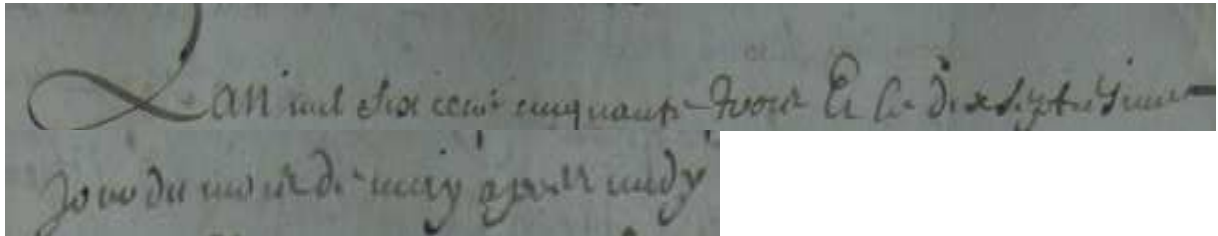 Lan mil six cens cinquante trois Et le dixseptiesme
Jour du mois de may apres midy